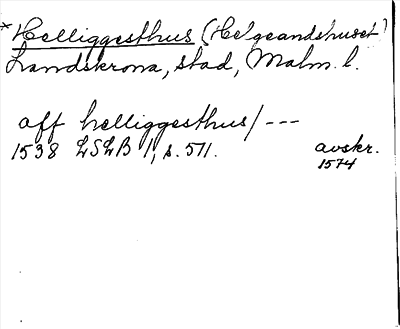 *Helliggesthus (Helgeandshuset)
Landskrona, stad, Malm. l.
aff helliggesthus/ ---
1538 LSLB 1, s. 511. avskr.
1574